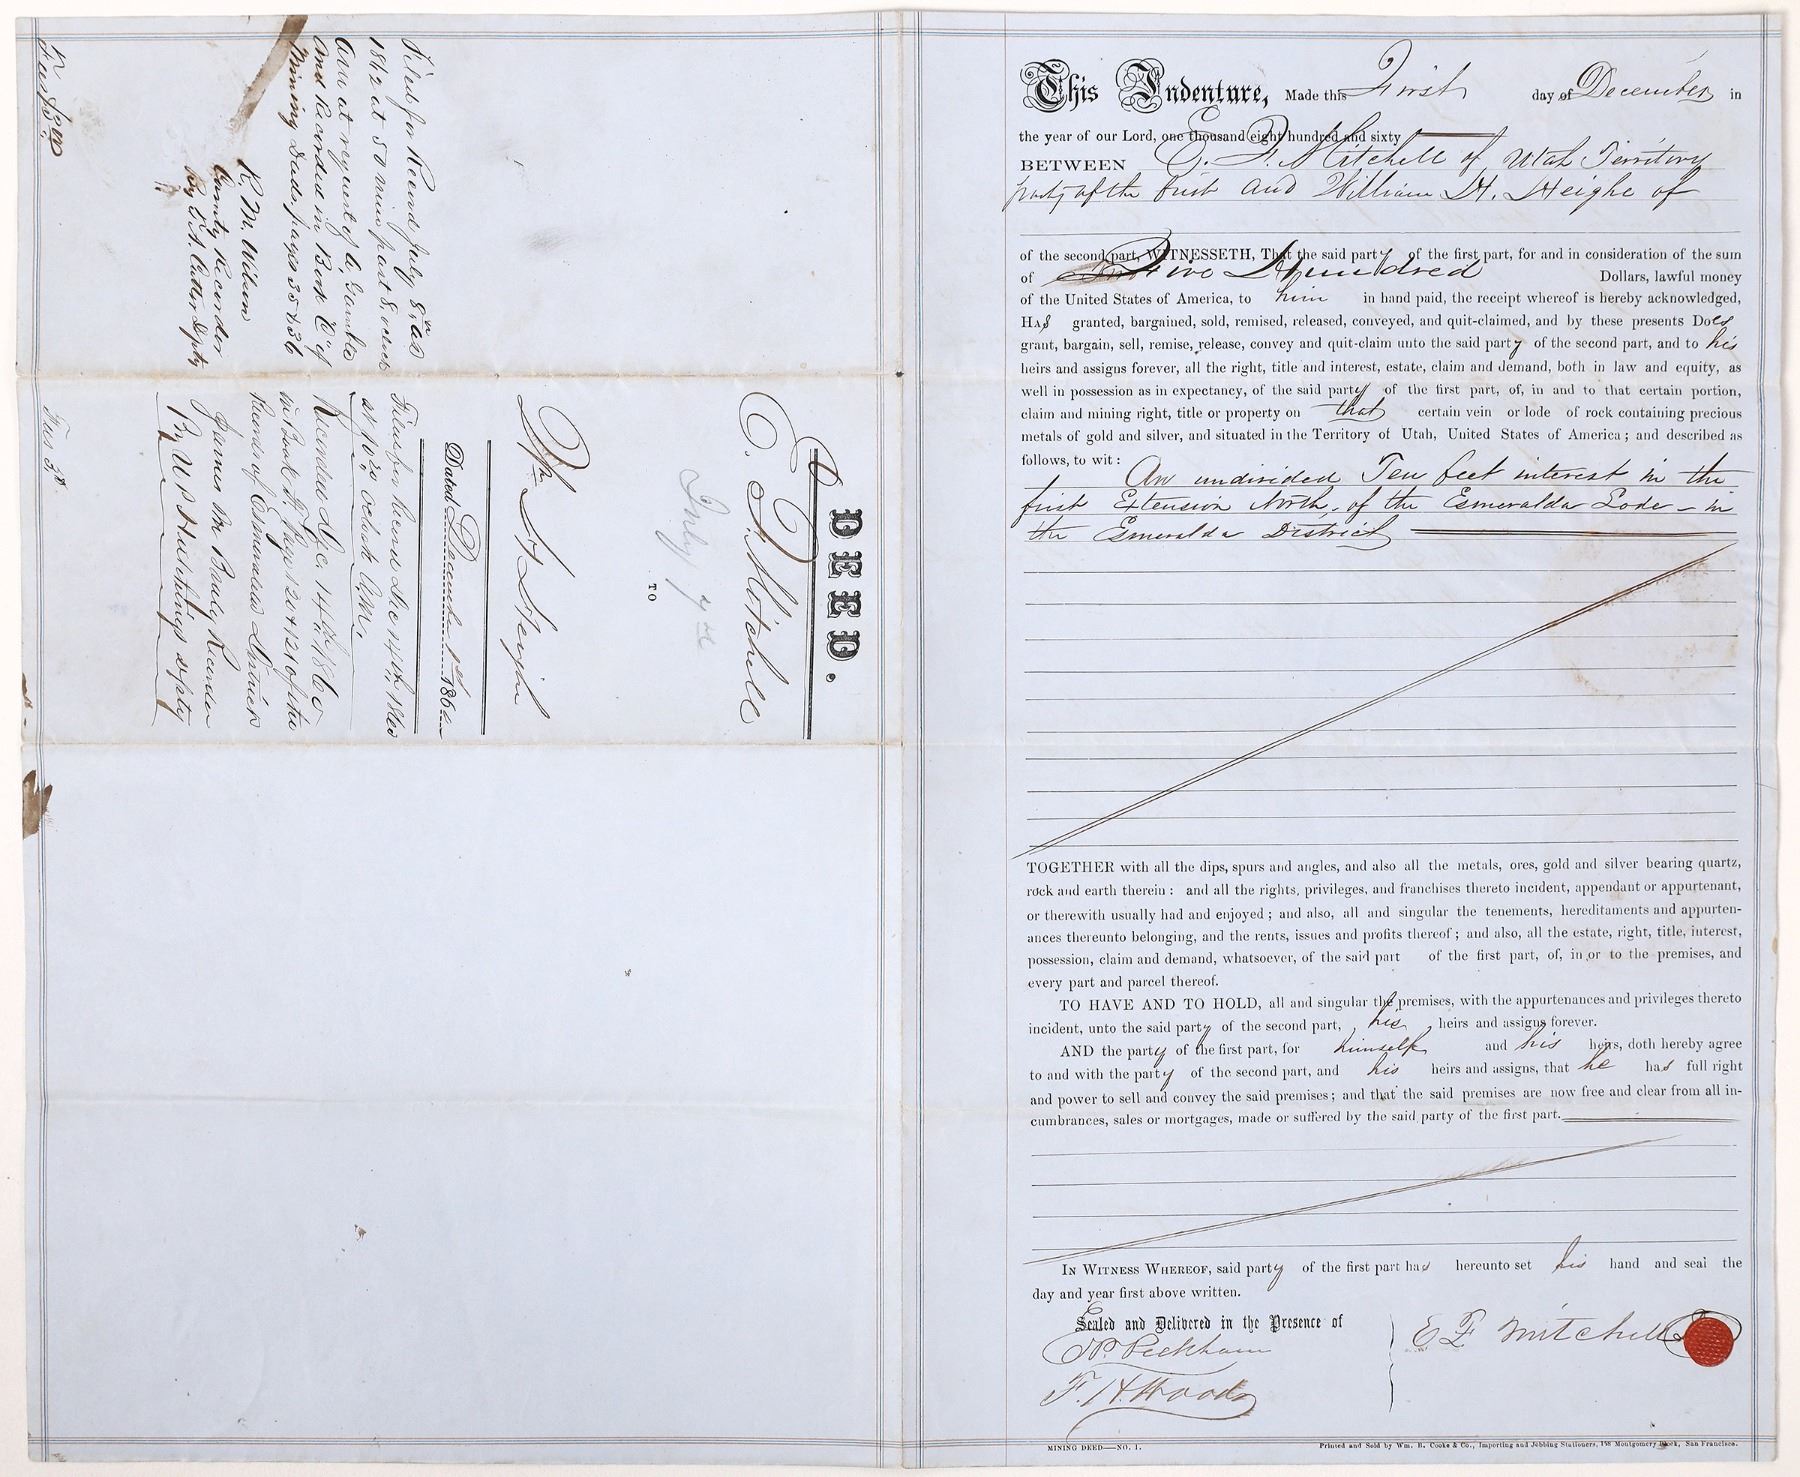 Fees $3.00
Filed for Record July 8th AS
1862 at 50 min past 8 oclock
A.M. at request of C. Gamble
And Recorded in Book "C" of
Mining Deeds, pages 35 & 36
R. M. Wilson
County Recorder
By T. A. Cutter Dpty
DEED.
E. F. Mitchell
July 7th
TO
Wm H Heighe
Dated December 1st 1860
Filed for Record Dec 14th 1860
at 10 20 oclock A.M.
Recorded Dec. 14th 1860
in Book A. Page 120 & 121 of the
Records of Esmeralda District
James M Recorder
By Hastings dpty
This Indenture, Made this First day of December in
the year of our Lord, one thousand eight hundred and sixty
BETWEEN E. F. Mitchell of Utah Territory
party of the first and William H. Heighe of
of the second part, WITNESSETH, That the said party of the first part, for and in consideration of the sum
of Five Hundred Dollars, lawful money
of the United States of America, to him in hand paid, the receipt whereof is hereby acknowledged,
HAS granted, bargained, sold, remised, released, conveyed, and quit-claimed, and by these presents Does
grant, bargain, sell, remise, release, convey and quit-claim unto the said party of the second part, and to his
heirs and assigns forever, all the right, title and interest, estate, claim and demand, both in law and equity, as
well in possession as in expectancy, of the said party of the first part, of, in and to that certain portion,
claim and mining right, title or property on that certain vein or lode of rock containing precious
metals of gold and silver, and situated in the Territory of Utah, United States of America; and described as
follows, to wit:
An undivided Ten feet interest in the
first Extension North, of the Esmeralda Lode - in
the Esmeralda District
TOGETHER with all the dips, spurs and angles, and also all the metals, ores, gold and silver bearing quartz,
rock and earth therein: and all the rights, privileges, and franchises thereto incident, appendant or appurtenant,
or therewith usually had and enjoyed; and also, all and singular the tenements, hereditaments and appurten-
ances thereunto belonging, and the rents, issues and profits thereof; and also, all the estate, right, title, interest,
possession, claim and demand, whatsoever, of the said part of the first part, of, in or to the premises, and
every part and parcel thereof.
TO HAVE AND TO HOLD, all and singular the premises, with the appurtenances and privileges thereto
incident, unto the said party of the second part, his heirs and assigns forever.
AND the party of the first part, for himself and his heirs, doth hereby agree
to and with the party of the second part, and his heirs and assigns, that he has full right
and power to sell and convey the said premises; and that the said premises are now free and clear from all in-
cumbrances, sales or mortgages, made or suffered by the said party of the first part.
IN WITNESS WHEREOF, said party of the first part has hereunto set his hand and seal the
day and year first above written.
Sealed and Delivered in the Presence of
Peckham
F. H. Woods
E F Mitchell
MINING DEED—NO. 1.
Printed and Sold by Wm. B. Cooke & Co., Importing and Jobbing Stationers, 158 Montgomery Block, San Francisco.